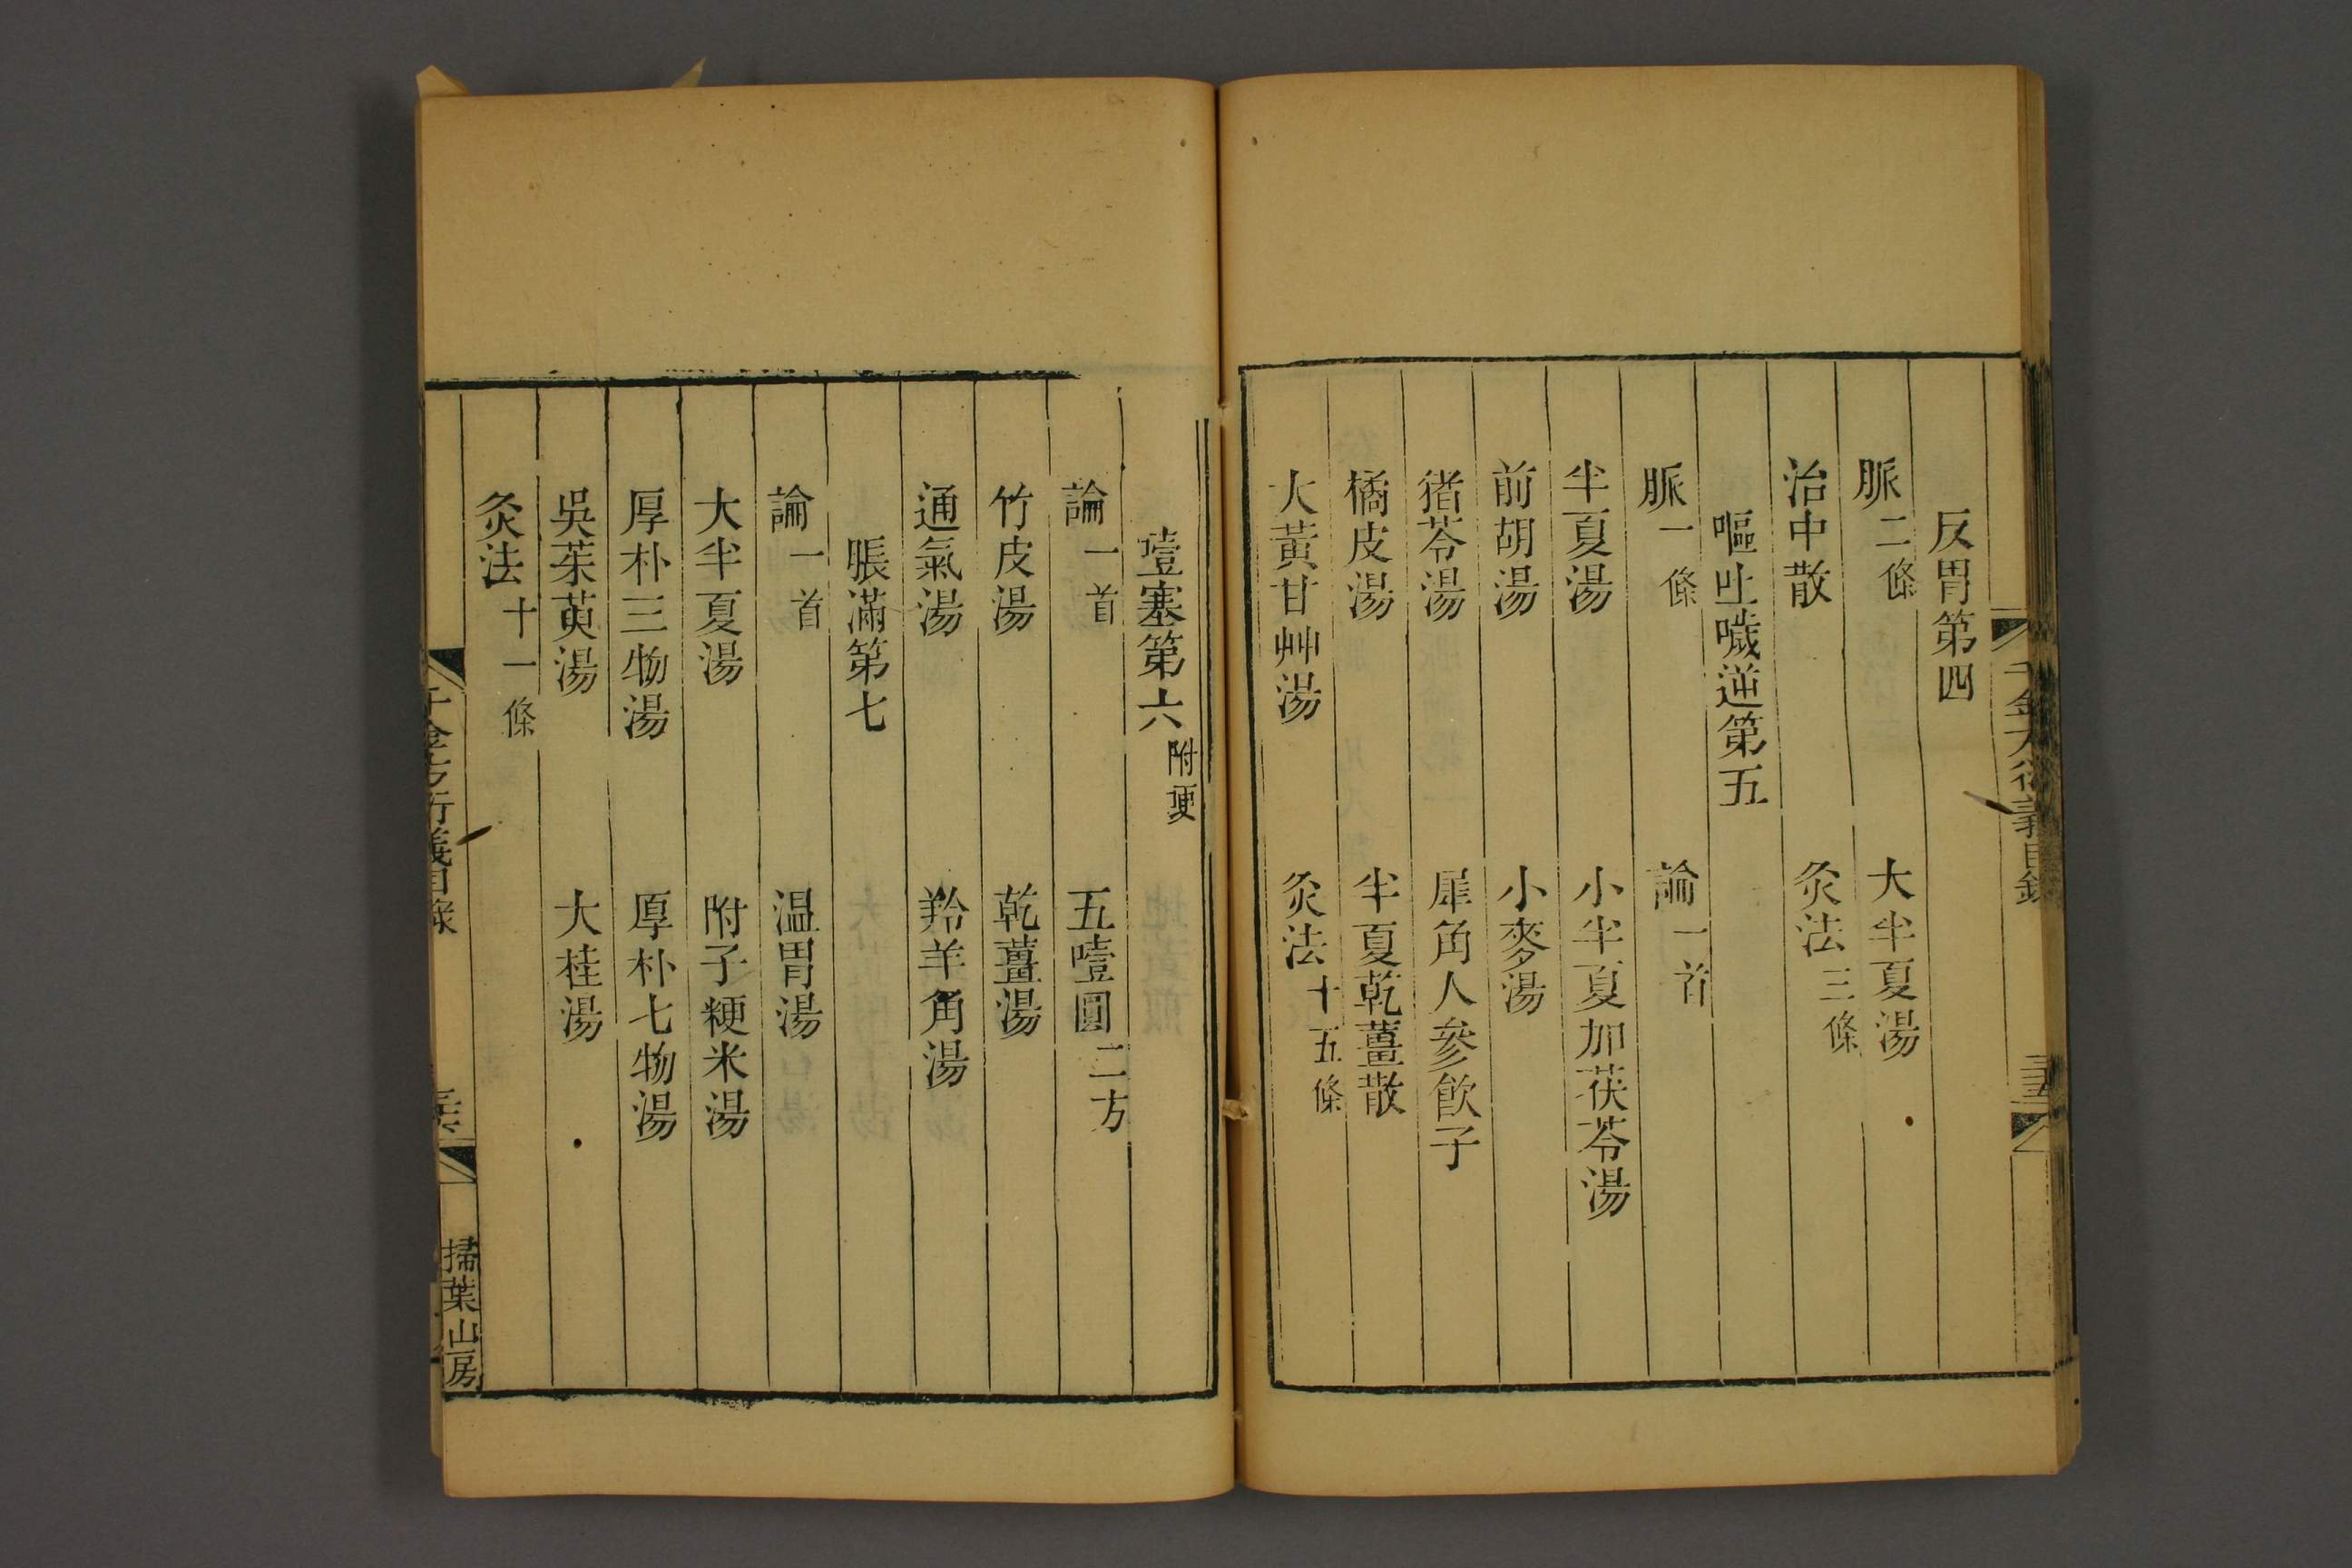 反胃第四
脈二條　大半夏湯
治中散　灸法三條
嘔吐噦逆第五
脈一條　論一首
半夏湯　小半夏加茯苓湯
前胡湯　小麥湯
猪苓湯　犀角人參飲子
橘皮湯　半夏乾薑散
大黃甘艸湯　灸法十五條
噎塞第六附哽
論一首　五噎圓二方
竹皮湯　乾薑湯
通氣湯　羚羊角湯
脹滿第七
論一首　温胃湯
大半夏湯　附子粳米湯
厚朴三物湯　厚朴七物湯
吳茱萸湯　大桂湯
灸法十一條
千金方衍義目錄
掃葉山房